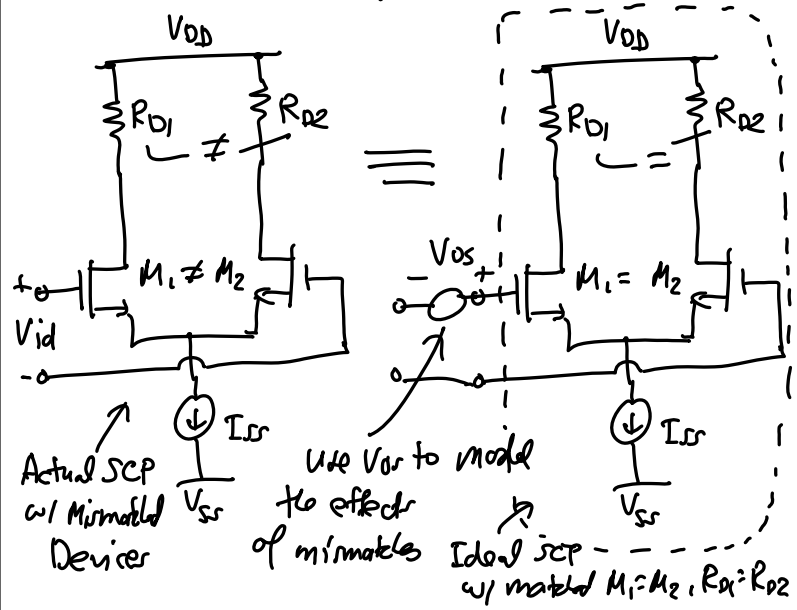 VDD
RD1
RD2
≠
M1 ≠ M2
+
Vid
-
ISS
VSS
Actual SCP
w/ Mismatched
Devices
≡
- VOS +
use VOS to model
the effects
of mismatches
VDD
RD1
RD2
=
M1 = M2
ISS
VSS
Ideal SCP
w/ matched M1=M2, RD1=RD2